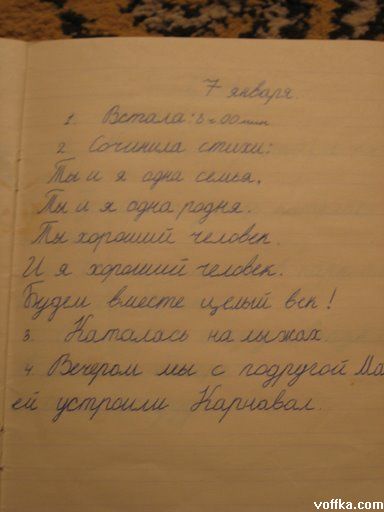 7 января.
1. Встала: в 00 мин
2. Сочинила стихи:
Ты и я одна семья.
Ты и я одна родня.
Ты хороший человек.
И я хороший человек.
Будем вместе целый век!
3. Каталась на лыжах.
4. Вечером мы с подругой Ма
ей устроили Карнавал.
voffka.com